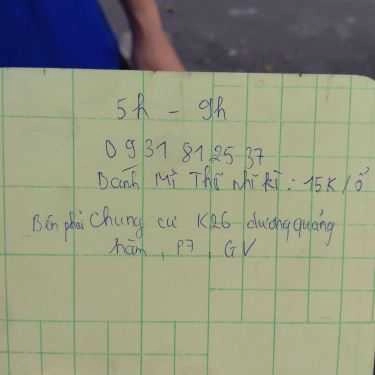 5h - 9h
0931 81 25 37
Bánh Mì Thổ Nhĩ Kì : 15K/ổ
Bên phải Chung cư K26 dương quảng
hàm, P7, GV